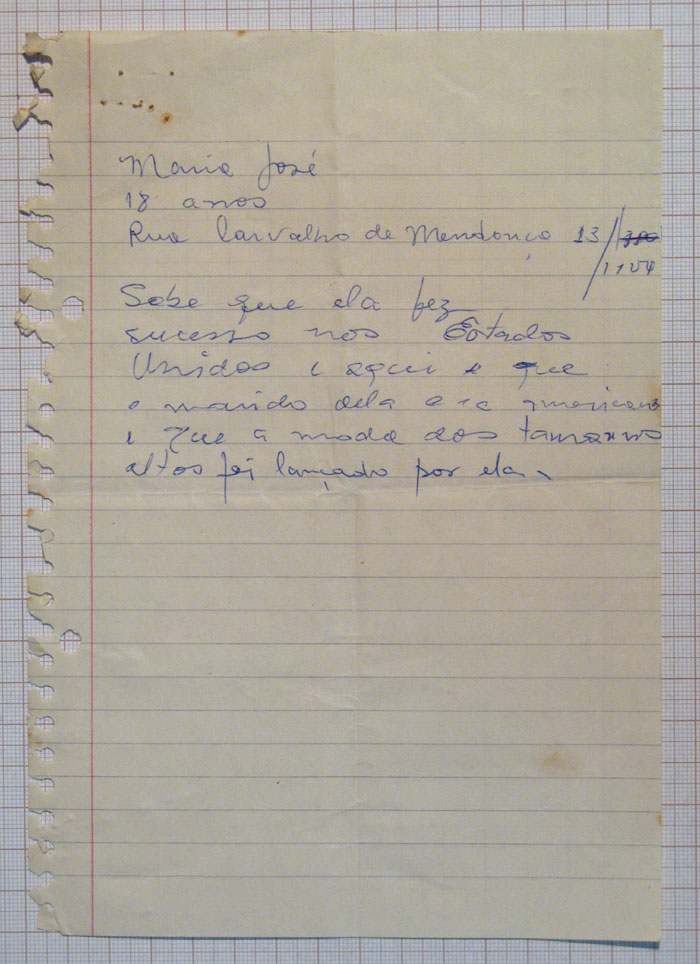 Maria José
18 anos
Rua Carvalho de Mendonça 13/
/1104
Sabe que ela fez
sucesso nos Estados
Unidos e aqui e que
o marido dela era americano
e que a moda dos tamancos
altos foi lançado por ela.